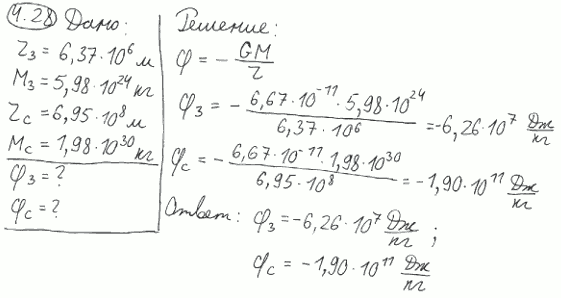 4.28 Дано:
r₃ = 6,37·10⁶ м
M₃ = 5,98·10²⁴ кг
r_c = 6,95·10⁸ м
M_c = 1,98·10³⁰ кг
φ₃ = ?
φ_c = ?
Решение:
φ = - GM/r
φ₃ = - 6,67·10⁻¹¹·5,98·10²⁴/6,37·10⁶ = -6,26·10⁷ Дж/кг
φ_c = - 6,67·10⁻¹¹·1,98·10³⁰/6,95·10⁸ = -1,90·10¹¹ Дж/кг
Ответ: φ₃ = -6,26·10⁷ Дж/кг ;
φ_c = -1,90·10¹¹ Дж/кг